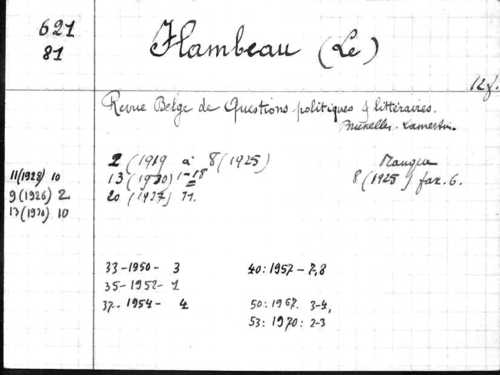 621
81
Flambeau (Le)
12f.
Revue Belge de Questions politiques & littéraires.
Bruxelles - Lamertin.
2 (1919 à 8 (1925)
Manque
11 (1928) 10
13 (1930) 1-18
8 (1925) fax. 6.
9 (1926) 2
20 (1937) 11.
13 (1930) 10
33-1950- 3
40: 1957 - 7,8
35-1952- 1
37- 1954- 4
50: 1967. 3-4,
53: 1970: 2-3